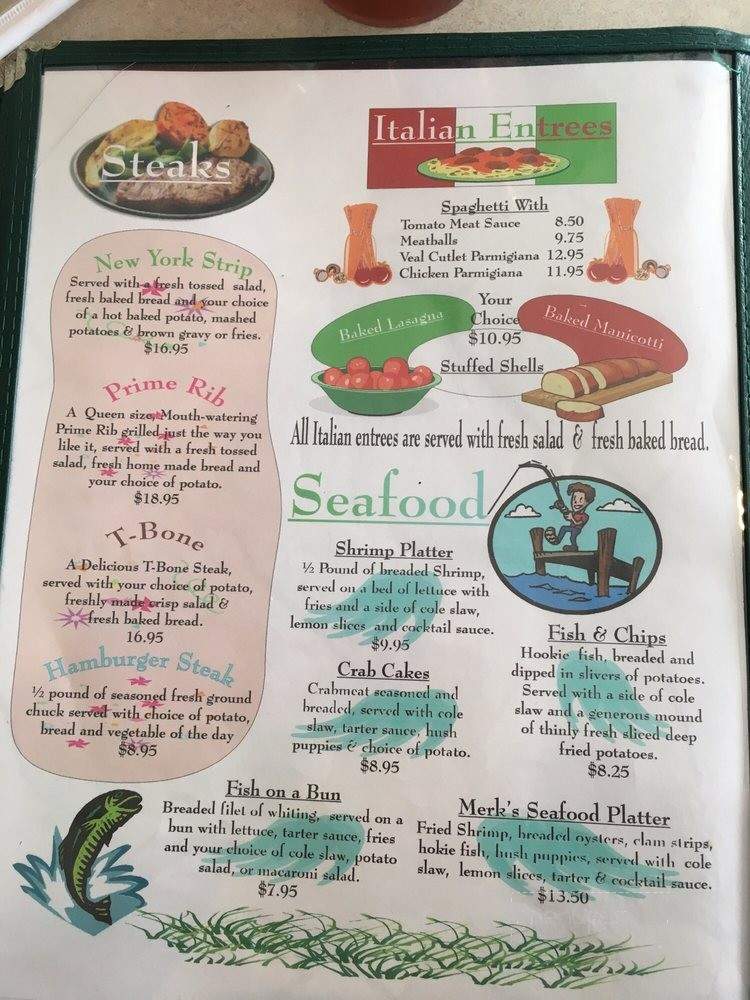 Steaks
New York Strip
Served with a fresh tossed salad,
fresh baked bread and your choice
of a hot baked potato, mashed
potatoes & brown gravy or fries.
$16.95
Prime Rib
A Queen size, Mouth-watering
Prime Rib grilled just the way you
like it, served with a fresh tossed
salad, fresh home made bread and
your choice of potato.
$18.95
T-Bone
A Delicious T-Bone Steak,
served with your choice of potato,
freshly made crisp salad &
fresh baked bread.
16.95
Hamburger Steak
½ pound of seasoned fresh ground
chuck served with choice of potato,
bread and vegetable of the day
$8.95
Italian Entrees
Spaghetti With
Tomato Meat Sauce 8.50
Meatballs 9.75
Veal Cutlet Parmigiana 12.95
Chicken Parmigiana 11.95
Your
Choice
$10.95
Baked Lasagna
Baked Manicotti
Stuffed Shells
All Italian entrees are served with fresh salad & fresh baked bread.
Seafood
Shrimp Platter
½ Pound of breaded Shrimp,
served on a bed of lettuce with
fries and a side of cole slaw,
lemon slices and cocktail sauce.
$9.95
Crab Cakes
Crabmeat seasoned and
breaded, served with cole
slaw, tarter sauce, hush
puppies & choice of potato.
$8.95
Fish & Chips
Hookie fish, breaded and
dipped in slivers of potatoes.
Served with a side of cole
slaw and a generous mound
of thinly fresh sliced deep
fried potatoes.
$8.25
Fish on a Bun
Breaded filet of whiting, served on a
bun with lettuce, tarter sauce, fries
and your choice of cole slaw, potato
salad, or macaroni salad.
$7.95
Merk's Seafood Platter
Fried Shrimp, breaded oysters, clam strips,
hokie fish, hush puppies, served with cole
slaw, lemon slices, tarter & cocktail sauce.
$13.50